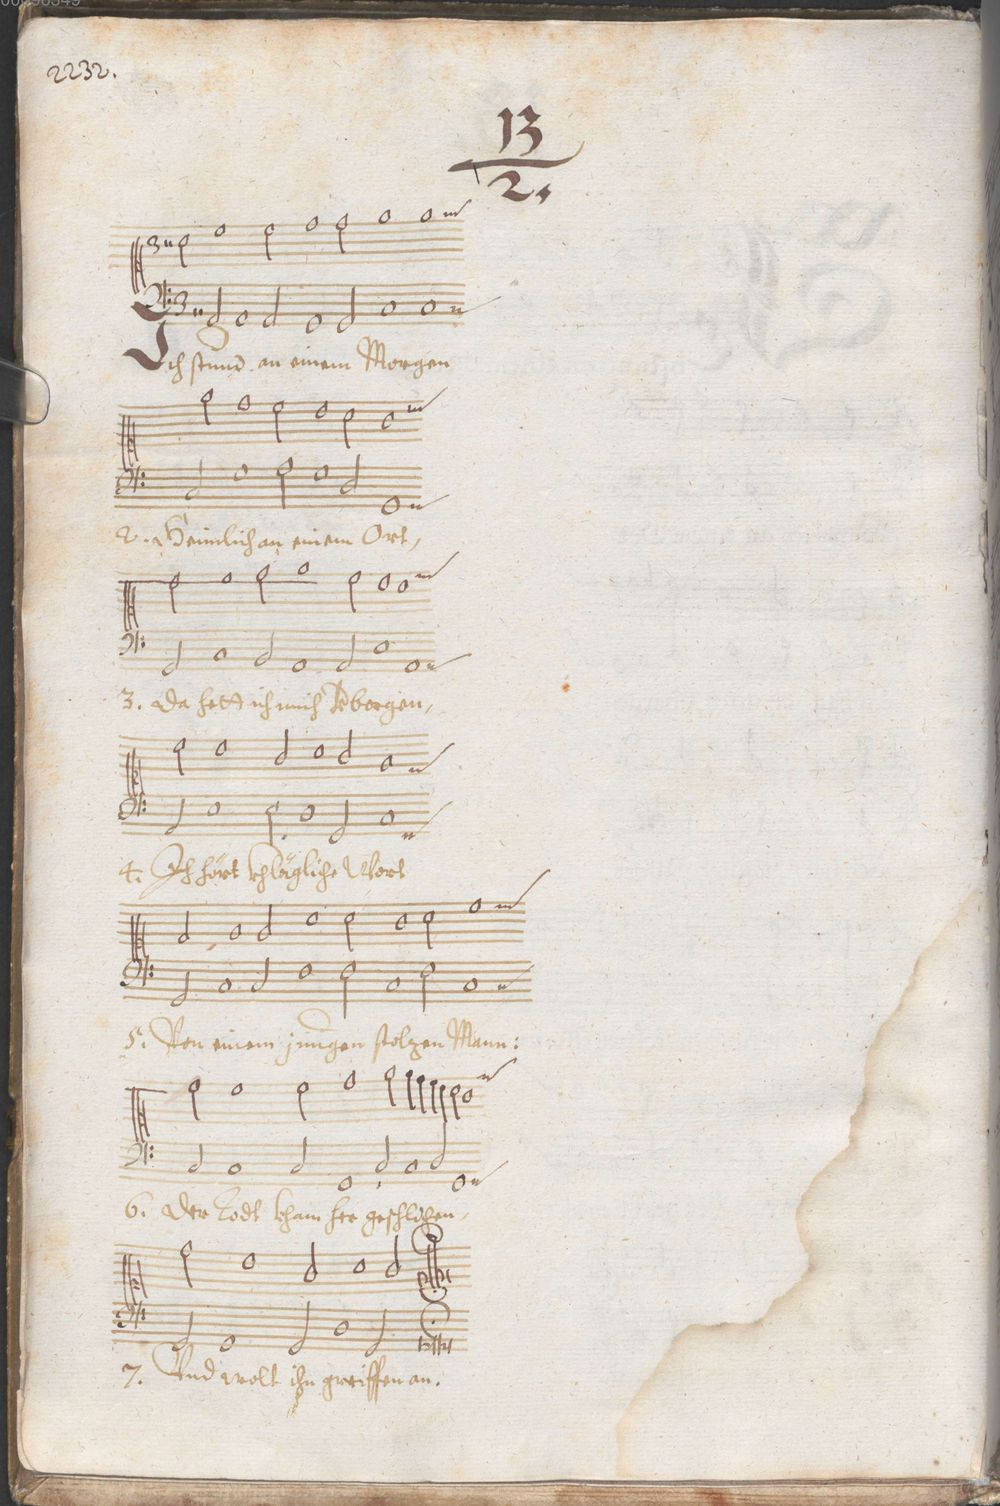 2232.
13
2.
Ich stund an einem Morgen
2. Heimlich an einem Ort,
3. Da hett ich mich verborgen,
4. Ich hört khlägliche Wort
5. Von einem jungen stolzen Mann:
6. Der Todt kham her geschlichen,
7. Vnd wolt ihn greiffen an.